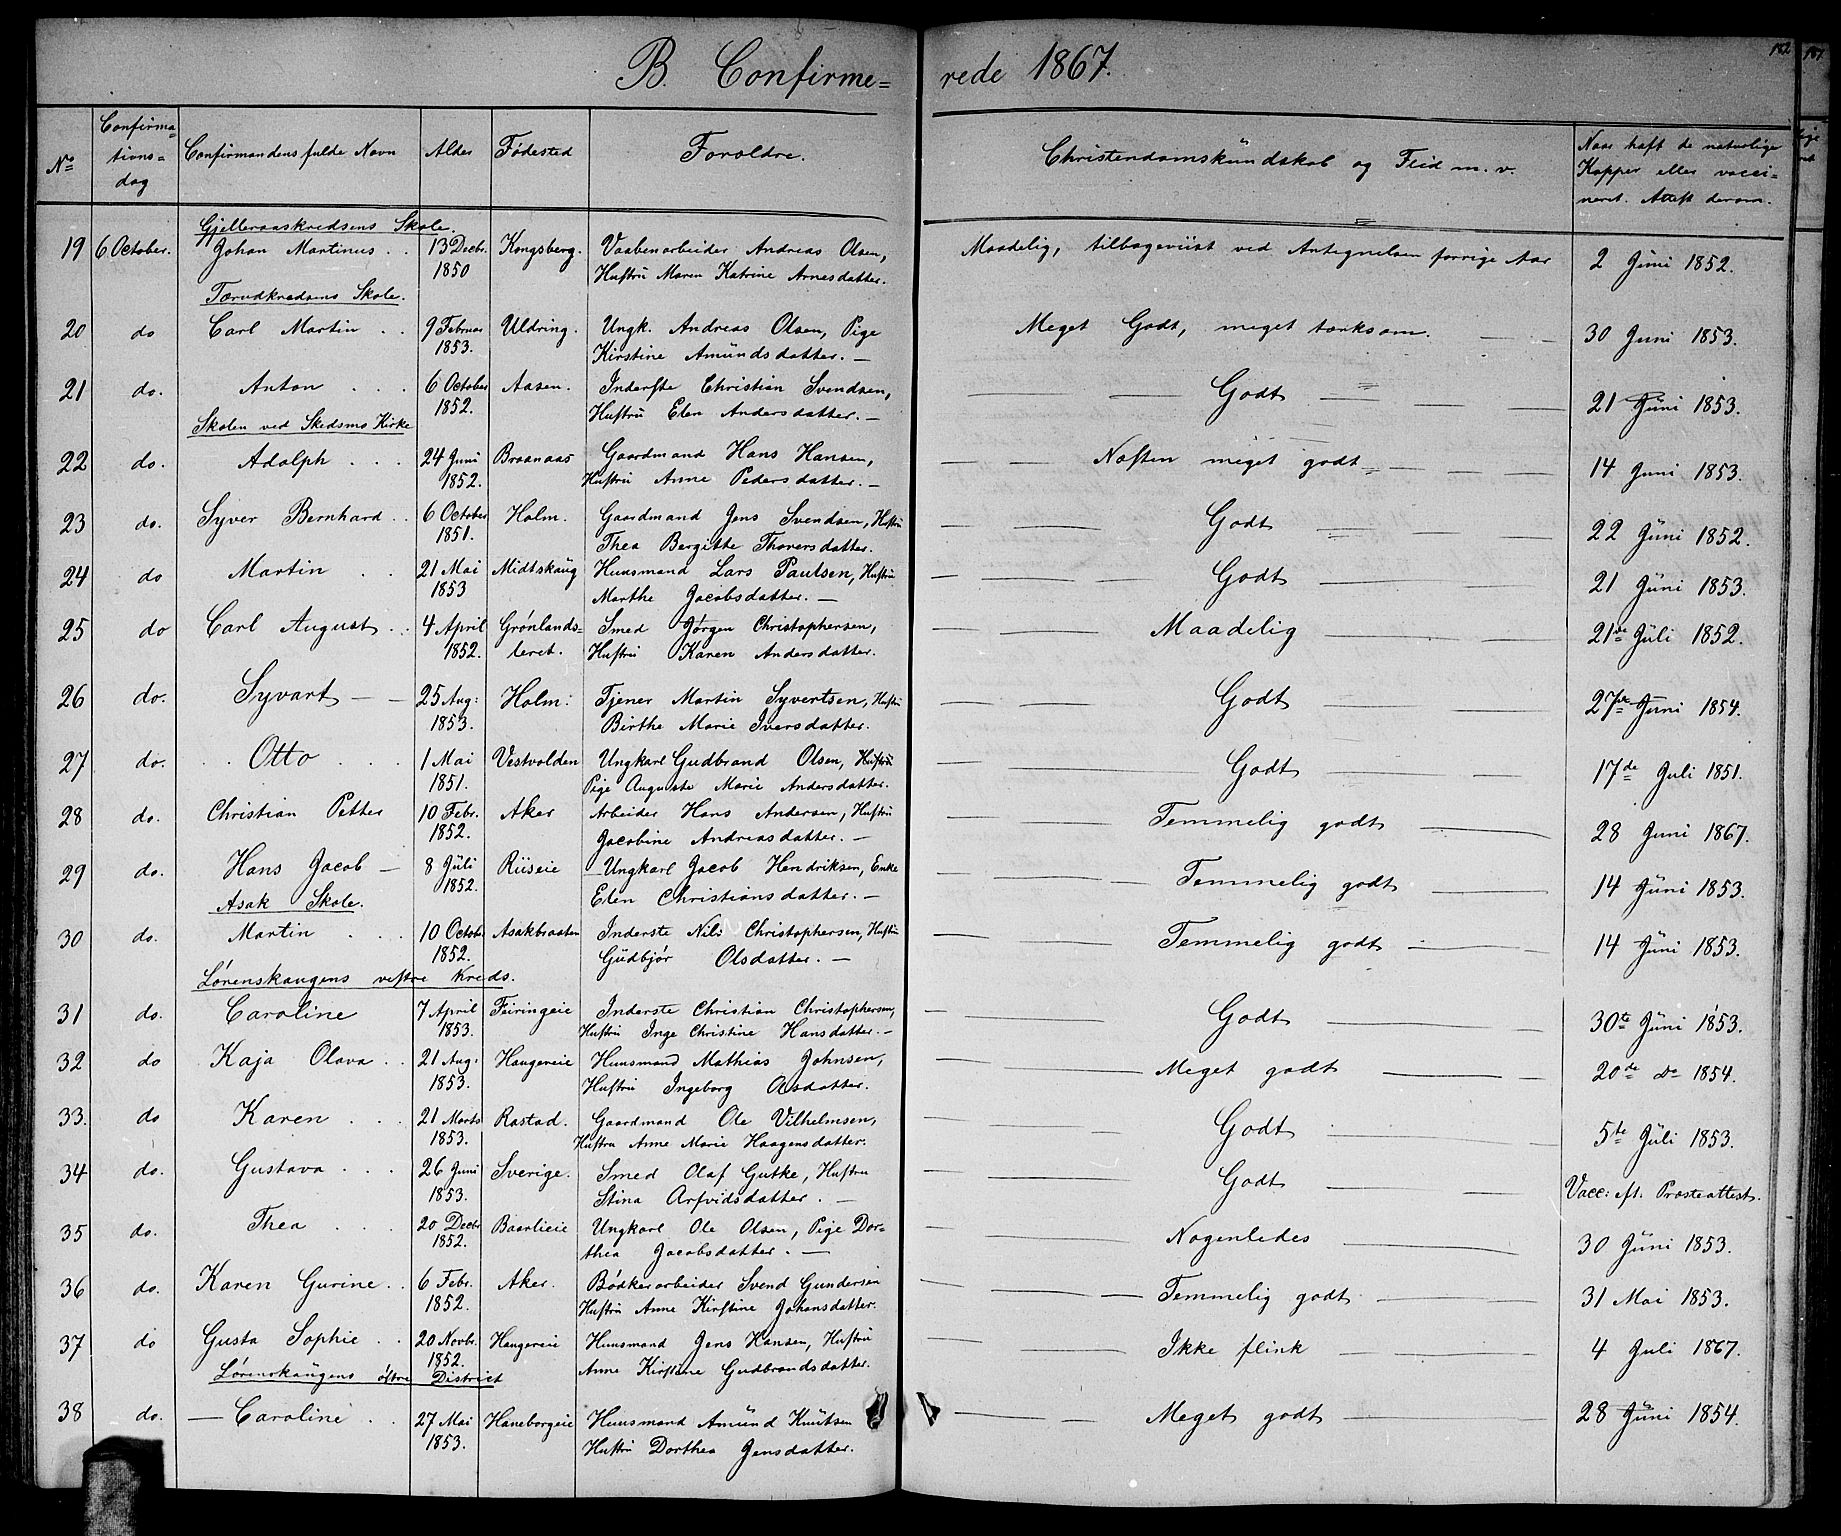 B. Confirme=rede 1867.
182
No | Confirmationsdag | Confirmandens fulde Navn | Alder | Fødested | Forældre. | Christendomskundskab og Flid m. v. | Naar haft de naturlige Kopper eller vaccineret. Attest derom.
Gjelleraaskredsens Skole.
19 | 6 October. | Johan Martinus | 13 Decbr. 1850 | Kongsberg. | Vaabenarbeider Andreas Olsen, Hustru Maren Katrine Arnesdatter. | Maadelig, tilbageviist ved Antegnelsen forrige Aar | 2 Juni 1852.
Tærudkredsens Skole.
20 | do | Carl Martin | 9 Februar 1853. | Uldring. | Ungk. Andreas Olsen, Pige Kirstine Amundsdatter. | Meget Godt, meget tænksom. | 30 Juni 1853.
21 | do. | Anton | 6 October 1852. | Aasen. | Inderste Christian Svendsen, Hustru Elen Andersdatter. | Godt | 21 Juni 1853.
Skolen ved Skedsmo Kirke
22 | do. | Adolph | 24 Juni 1852. | Braanaas | Gaardmand Hans Hansen, Hustru Anne Pedersdatter. | Næsten meget godt | 14 Juni 1853.
23 | do. | Syver Bernhard | 6 October 1851. | Holm. | Gaardmand Jens Svendsen, Hustru Thea Bergitte Thorersdatter. | Godt | 22 Juni 1852.
24 | do | Martin | 21 Mai 1853 | Midtskaug | Huusmand Lars Paulsen, Hustru Marthe Jacobsdatter. | Godt | 21 Juni 1853.
25 | do | Carl August | 4 April 1852. | Grønlandsleret. | Smed Jørgen Christophersen, Hustru Karen Andersdatter. | Maadelig | 21de Juli 1852.
26 | do. | Syvart | 25 Aug: 1853. | Holm. | Tjener Martin Syvertsen, Hustru Birthe Marie Iversdatter. | Godt | 27de Juni 1854.
27 | do. | Otto | 1 Mai 1851. | Vestvolden | Ungkarl Gudbrand Olsen, Hustru Pige Auguste Marie Andersdatter. | Godt | 17de Juli 1851.
28 | do. | Christian Petter | 10 Febr. 1852. | Aker | Arbeider Hans Andersen, Hustru Jacobine Andreasdatter. | Temmelig godt | 28 Juni 1867.
29 | do. | Hans Jacob | 8 Juli 1852. | Riiseie | Ungkarl Jacob Hendriksen, Enke Elen Christiansdatter. | Temmelig godt | 14 Juni 1853.
Asak Skole.
30 | do. | Martin | 10 Octobr 1852. | Asakbraaten | Inderste Nils Christophersen, Hustru Gudbjør Olsdatter. | Temmelig godt | 14 Juni 1853.
Lørenskaugens vestre Kreds.
31 | do. | Caroline | 7 April 1853. | Feiringeie | Inderste Christian Christophersen, Hustru Inge Christine Hansdatter. | Godt | 30te Juni 1853.
32 | do | Kaja Olava | 21 Aug: 1853. | Haugereie | Huusmand Mathias Johnsen, Hustru Ingeborg Olsdatter. | Meget godt | 20de Do 1854.
33. | do | Karen | 21 Marts 1853. | Rastad. | Gaardmand Ole Vilhelmsen, Hustru Anne Marie Haagensdatter. | Godt | 5te Juli 1853.
34 | do. | Gustava | 26 Juni 1853. | Sverige. | Smed Olaf Gutke, Hustru Stina Arfvidsdatter. | Godt | Vacc: eft. Præsteattest.
35 | do. | Thea | 20 Decbr 1852. | Baarlieie | Ungkarl Ole Olsen, Pige Dorthea Jacobsdatter. | Nogenledes | 30 Juni 1853.
36 | do. | Karen Gurine | 6 Febr. 1852. | Aker. | Bødkerarbeider Svend Gundersen Hustru Anne Kirstine Johansdatter. | Temmelig godt | 31 Mai 1853.
37 | do | Gusta Sophie | 20 Novbr. 1852. | Haugereie | Huusmand Jens Hansen, Hustru Anne Kirstine Gudbrandsdatter. | Ikke flink | 4 Juli 1867.
Lørenskaugens østre District
38 | do. | Caroline | 27 Mai 1853. | Haneborgeie | Huusmand Amund Knutsen Hustru Dorthea Jensdatter. | Meget godt | 28 Juni 1854.